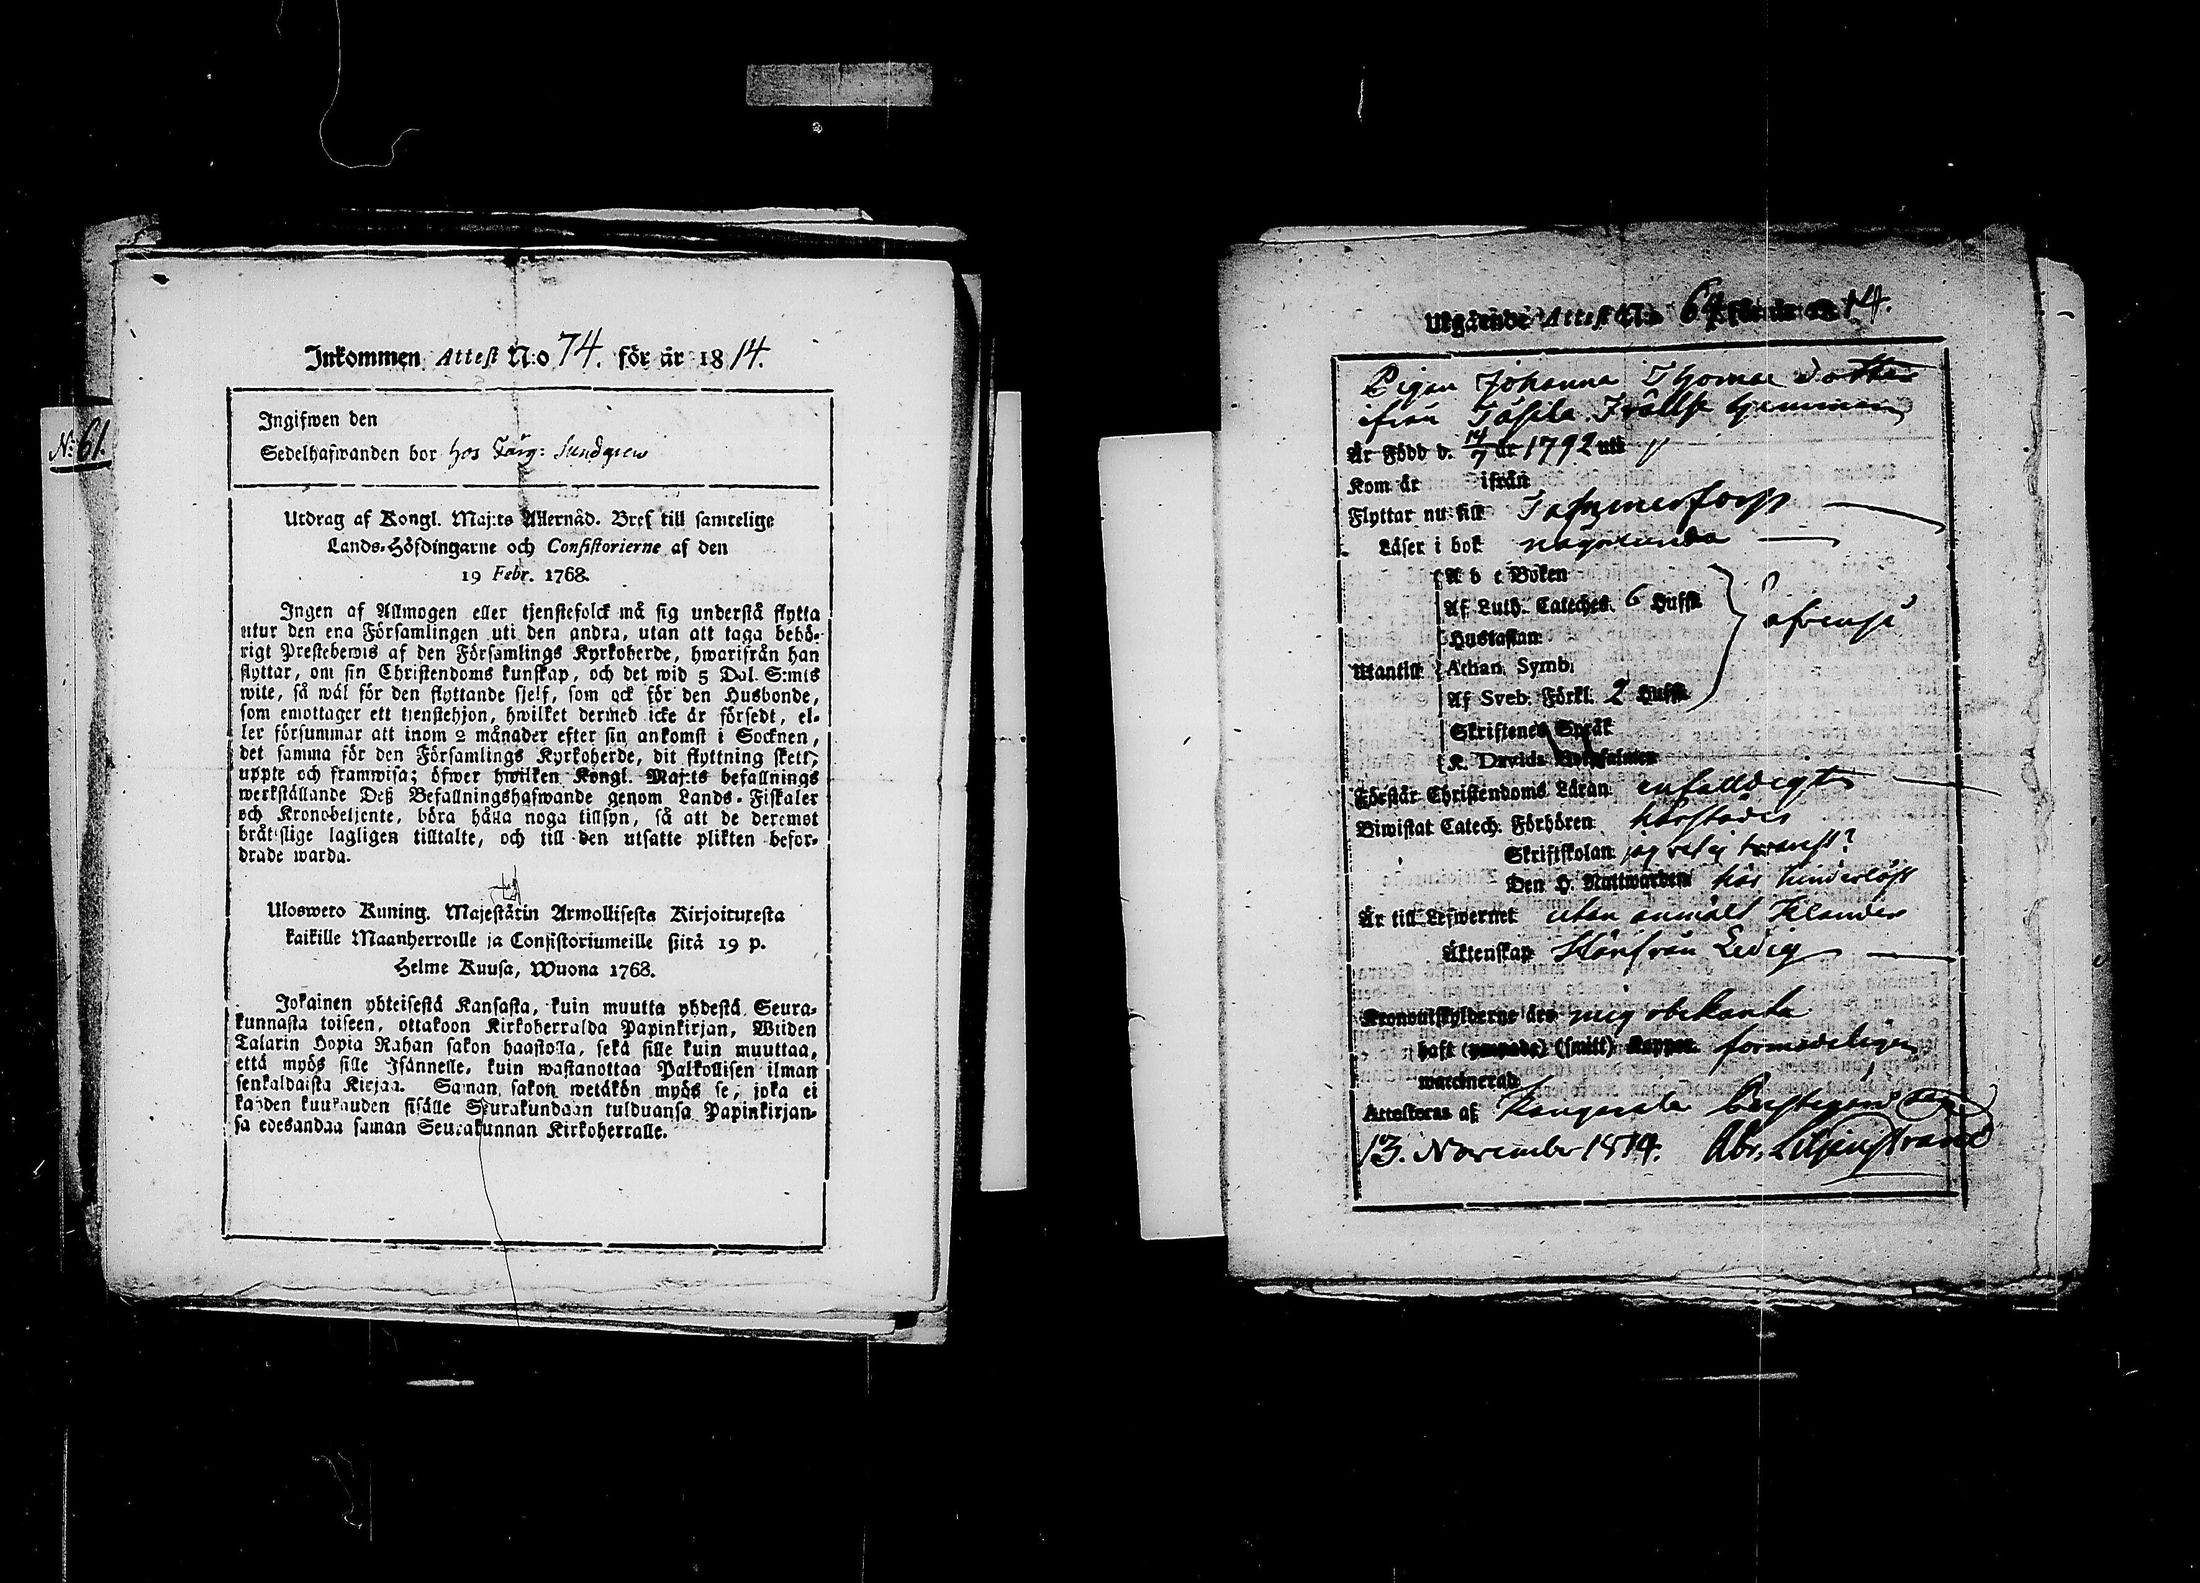 N:o 61.
Inkommen Attest N:o 74. för år 1814.
Ingifwen den
Sedelhafwanden bor hos Färg: Sundgren
Utdrag af Kongl. Maj:ts Allernåd. Bref till samtelige
Lands-Höfdingarne och Consistorierne af den
19 Febr. 1768.
Ingen af Allmogen eller tjenstefolck må sig understå flytta
utur den ena Församlingen uti den andra, utan att taga behö-
rigt Prestebewis af den Församlings Kyrkoherde, hwarifrån han
flyttar, om sin Christendoms kunskap, och det wid 5 Dal. S:mts
wite, så wäl för den flyttande sjelf, som ock för den Husbonde,
som emottager ett tjenstehjon, hwilket dermed icke är försedt, el-
ler försummar att inom 2 månader efter sin ankomst i Socknen,
det samma för den Församlings Kyrkoherde, dit flyttning skett,
uppte och framwisa; öfwer hwilken Kongl. Maj:ts befallnings
werkställande Deß Befallningshafwande genom Lands-Fiskaler
och Kronobetjente, böra hålla noga tillsyn, så att de deremot
bråtslige lagligen tilltalte, och till den utsatte plikten befor-
drade warda.
Ulosweto Kuning. Majestätin Armollisesta Kirjoituxesta
kaikille Maanherroille ja Consistoriumeille siitä 19 p.
Helme Kuusa, Wuona 1768.
Jokainen yhteisestä Kansasta, kuin muutta yhdestä Seura-
kunnasta toiseen, ottakoon Kirkoherralda Papinkirjan, Wiiden
Talarin Hopia Rahan sakon haastolla, sekä sille kuin muuttaa,
että myös sille Isännelle, kuin wastanottaa Palkollisen ilman
senkaldaista Kirjaa. Saman sakon wetäkön myös se, joka ei
kahden kuukauden sisälle Seurakundaan tulduansa Papinkirjan-
sa edesandaa saman Seurakunnan Kirkoherralle.
Utgående Attest N:o 64 för år 1814.
Pigan Johanna Thomae dotter
ifrån
Är Född d. 14/7 år 1792 uti
Kom år ifrån
Flyttar nu till Tammerfors
Läser i bok någorlunda
A b c Boken
Af Luth. Cateches. 6 Hufst.
Hustaflan
Utantill Athan. Symb.
Af Sveb. Förkl. 2 Hufst.
Skriftenes Språk
K. Davids Botpsalmer
Förstår Christendoms Läran enfaldigt
Biwistat Catech. Förhören härstädes
Skriftskolan
Den H. Nattwarden här hinderlöst
Är till Lefwernet utan anmält klander
Äktenskap Härifrån Ledig
Kronoutskylderne äro mig obekanta
haft (smitt) Koppor förmodeligen
waccinerad
Attesteras af Kangasala Prestegård den
13. November 1814. Abr. Lilljenstrand